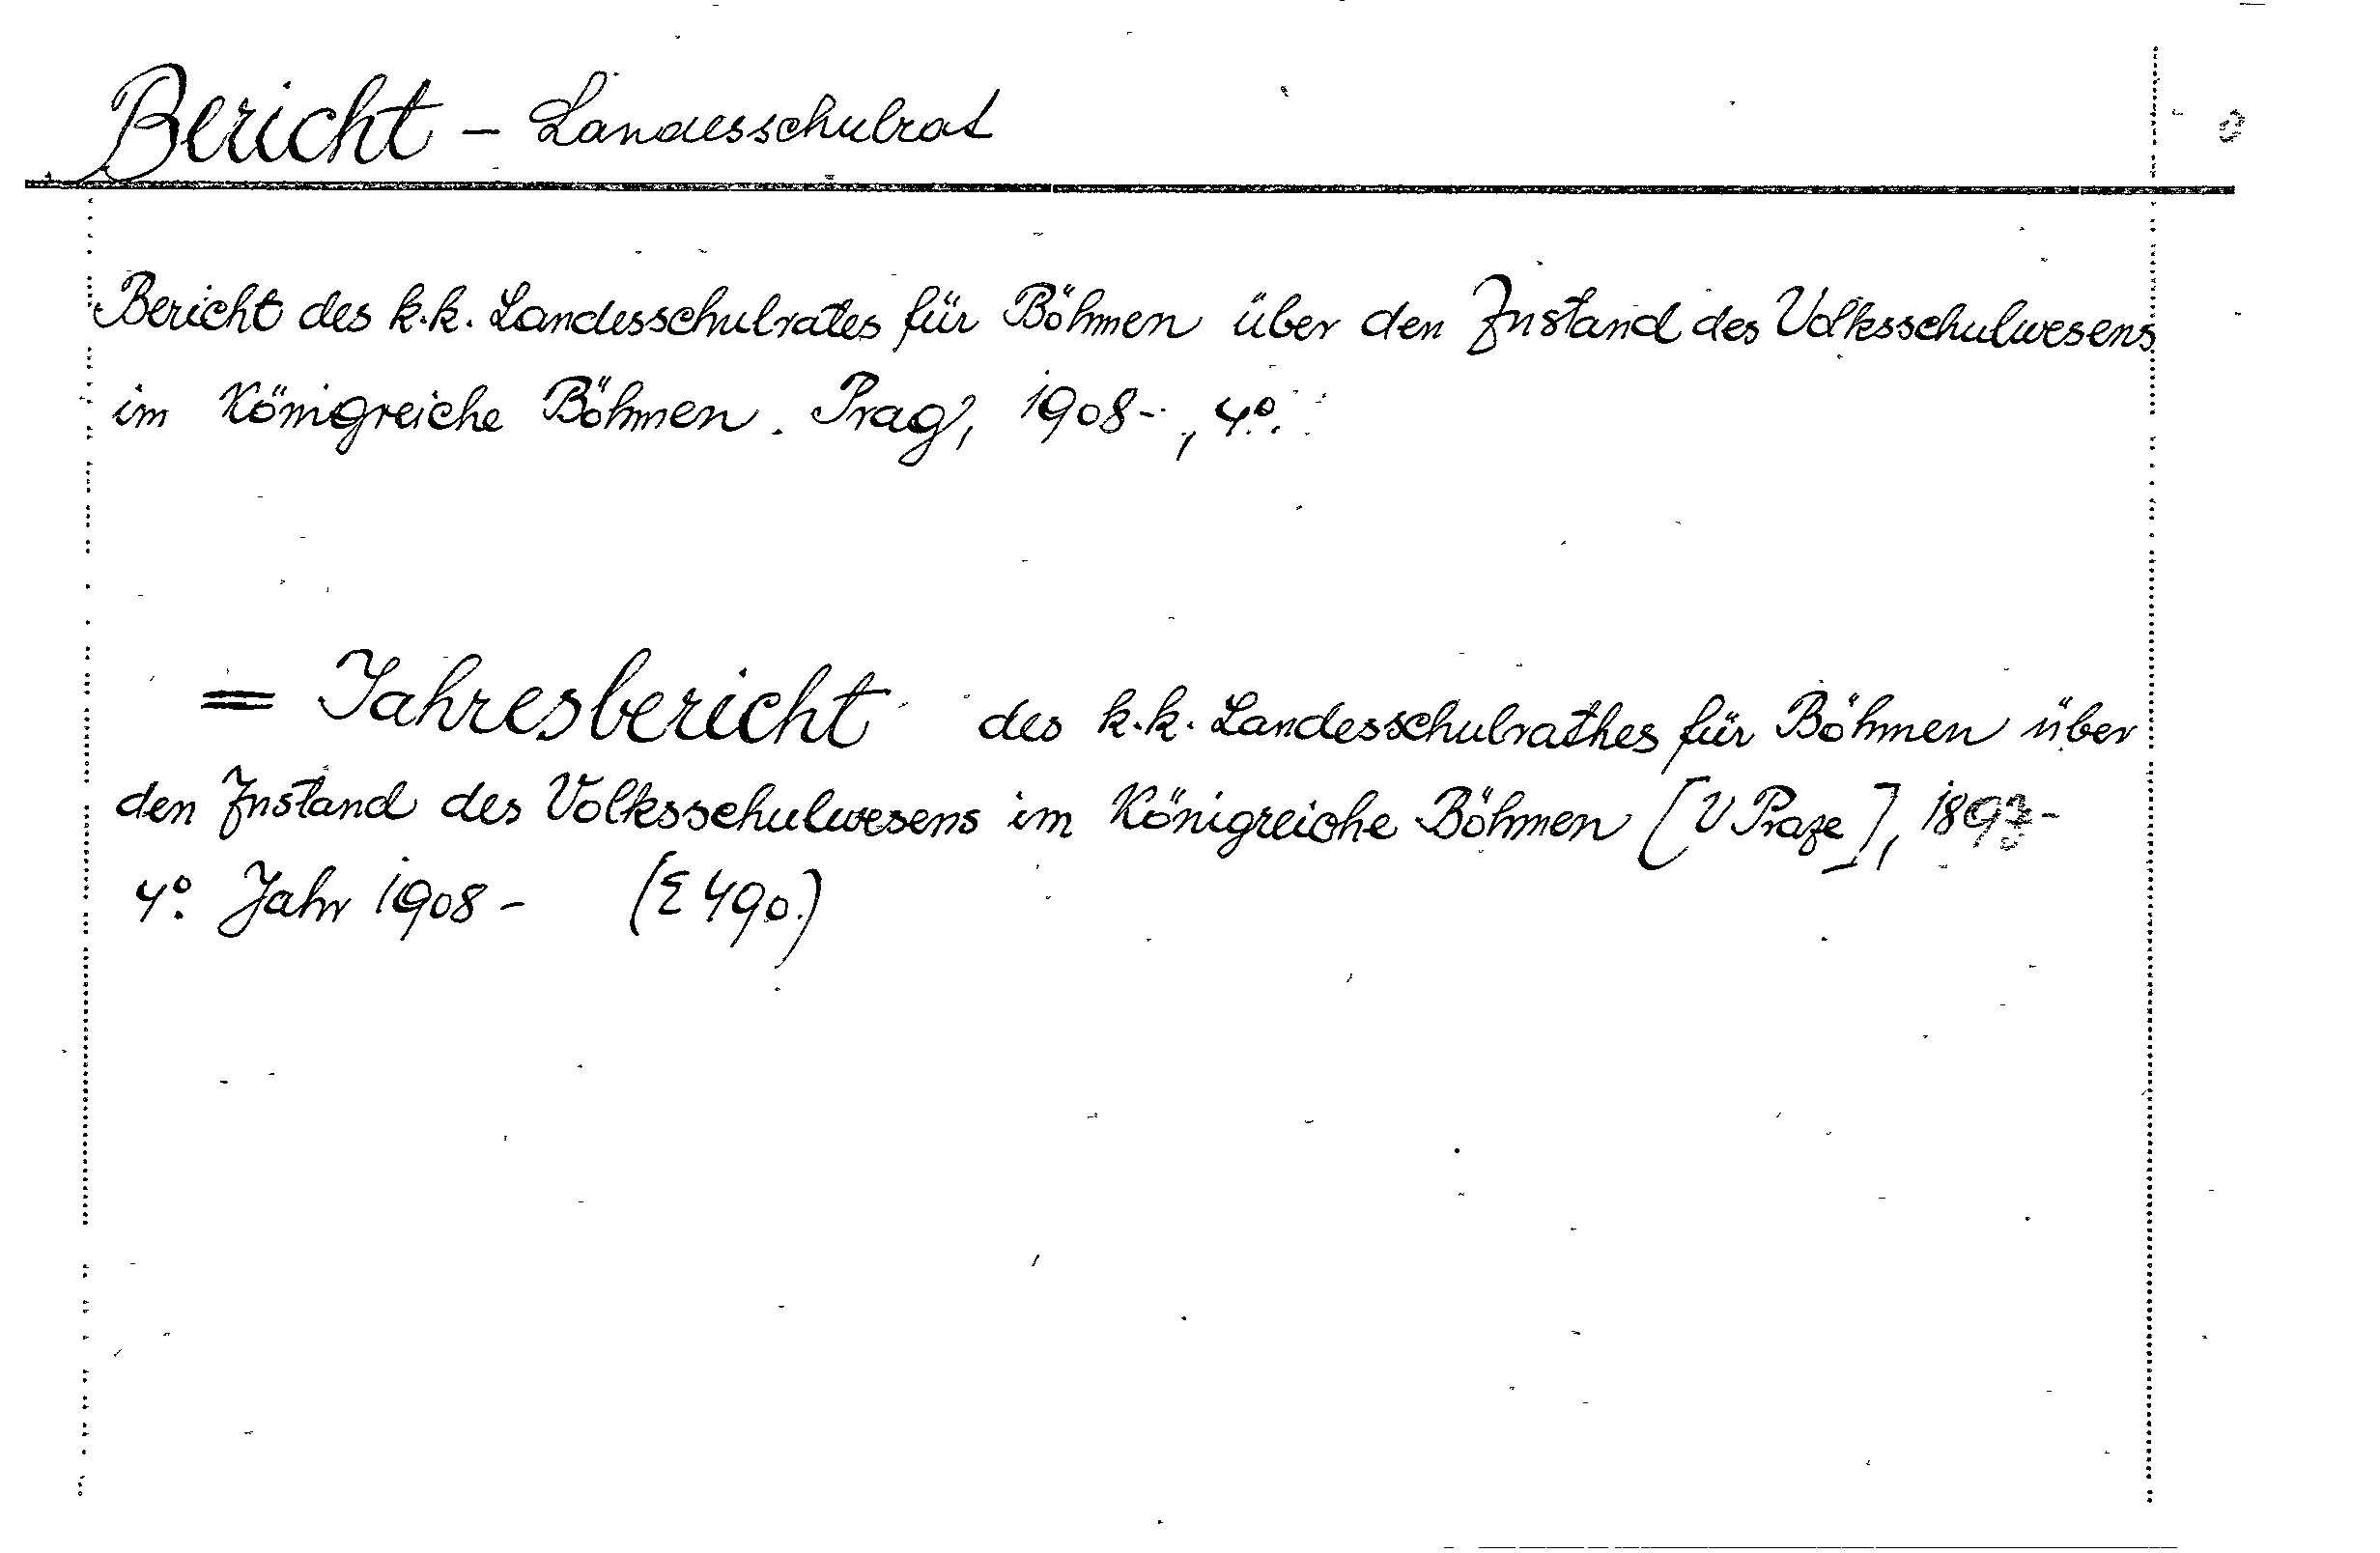 Bericht - Landesschulrat
Bericht des k.k. Landesschulrates für Böhmen über den Zustand des Volksschulwesens
im Königreiche Böhmen. Prag, 1908-, 4°.
= Jahresbericht des k.k. Landesschulrathes für Böhmen über
den Zustand des Volksschulwesens im Königreiche Böhmen [V Praze], 1897-
4°. Jahr 1908 - (Σ 490.)